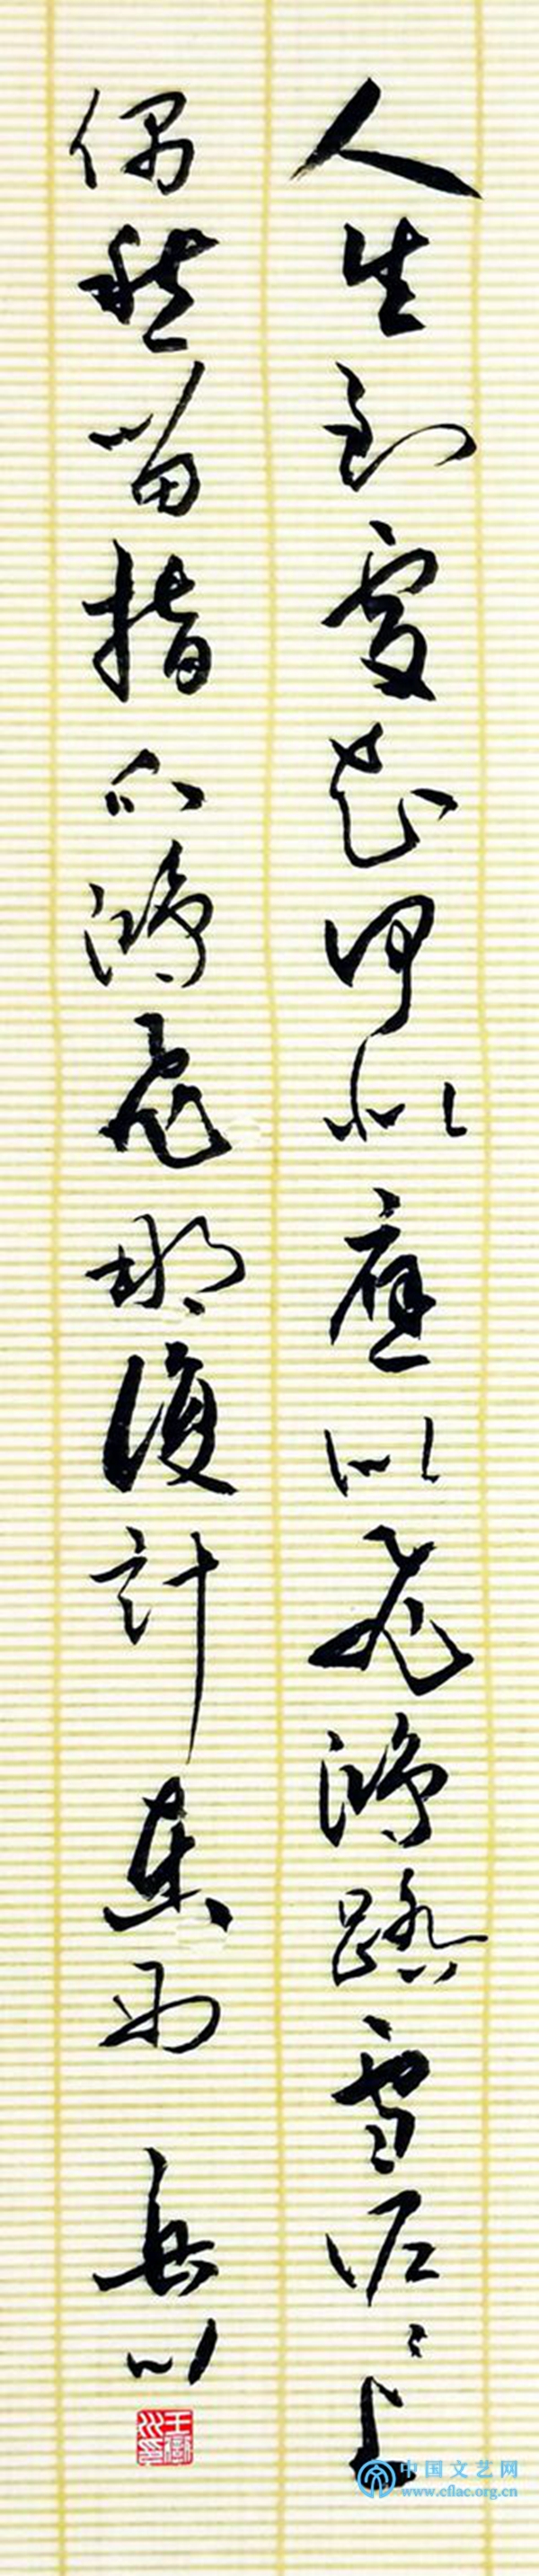 人生到處知何似應似飛鴻踏雪泥〻上
偶然留指爪鴻飛那復計東西 岳川
中国文艺网
www.cflac.org.cn